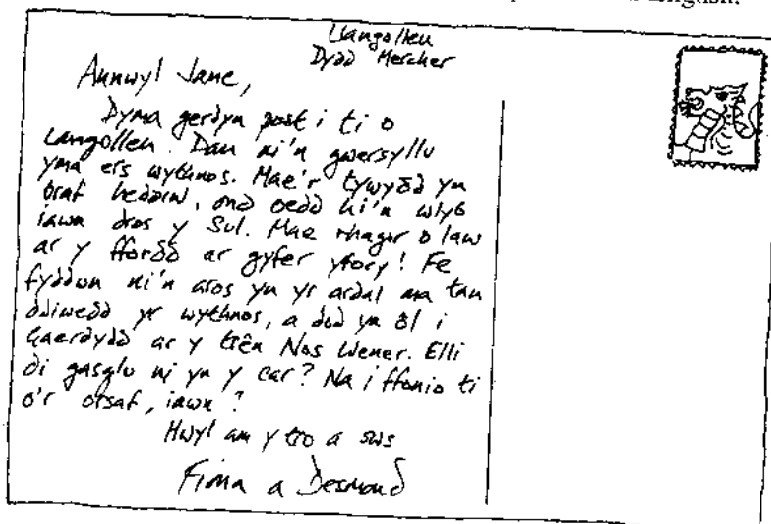 English.
Llangollen
Dydd Mercher
Annwyl Jane,
Dyma gerdyn post i ti o
Langollen. Dan ni'n gwersyllu
yma ers wythnos. Mae'r tywydd yn
braf heddiw, ond oedd hi'n wlyb
iawn dros y Sul. Mae rhagor o law
ar y ffordd ar gyfer yfory! Fe
fyddwn ni'n aros yn yr ardal ma tan
ddiwedd yr wythnos, a dod yn ôl i
Gaerdydd ar y trên Nos Wener. Elli
di gasglu ni yn y car? Na i ffonio ti
o'r orsaf, iawn?
Hwyl am y tro a sws
Fiona a Desmond